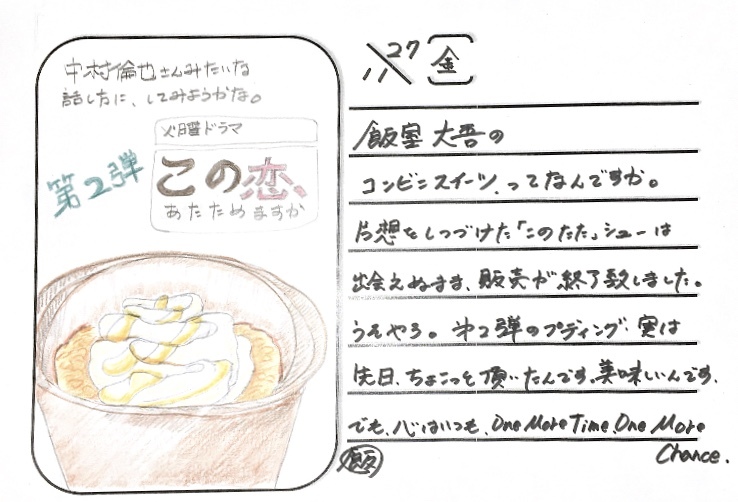 中村倫也さんみたいな
話し方に、してみようかな。
火曜ドラマ
第2弾
この恋、
あたためますか
11/27 金
飯室 大吾の
コンビニスイーツ、ってなんですか。
片想をしつづけた「このたた」シューは
出会えぬまま、販売が終了致しました。
うそやろ。第2弾のプディング、実は
先日、ちょこっと頂いたんです、美味しいんです、
でも、心はいつも、One More Time, One More
Chance.
飯